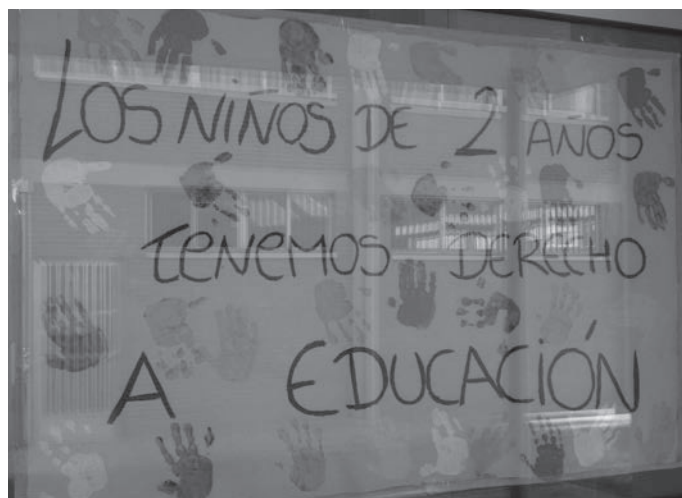 LOS NIÑOS DE 2 AÑOS
TENEMOS DERECHO
A EDUCACIÓN